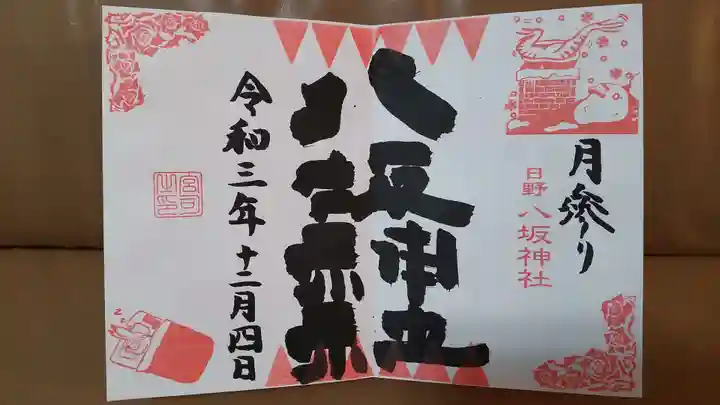 月参り
日野八坂神社
八坂神社
令和三年十二月四日
宮司之印